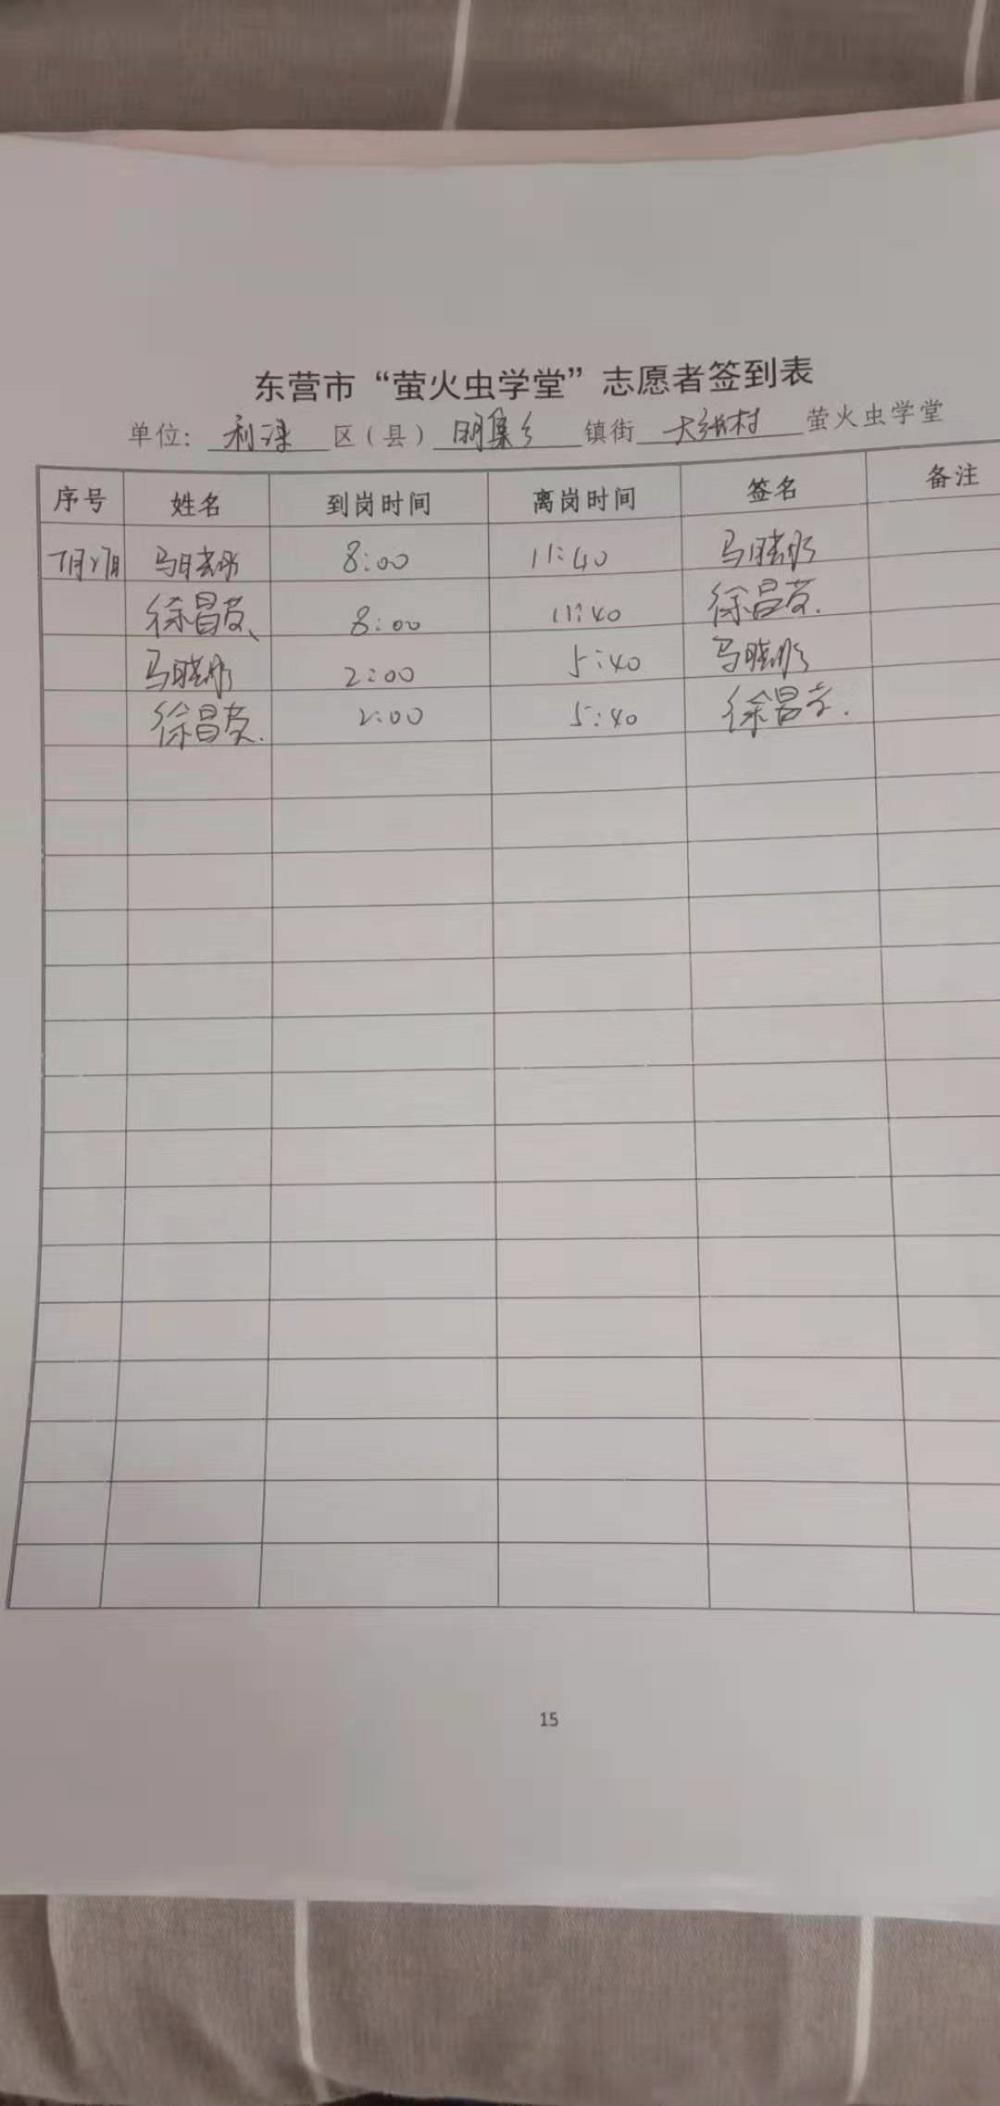 东营市“萤火虫学堂”志愿者签到表
单位：利津 区（县）明集乡 镇街 村 萤火虫学堂
序号 姓名 到岗时间 离岗时间 签名 备注
7月 马晓彤 8:00 11:40 马晓彤
徐昌英 8:00 11:40 徐昌英.
马晓彤 2:00 5:40 马晓彤
徐昌英. 2:00 5:40 徐昌英.
15